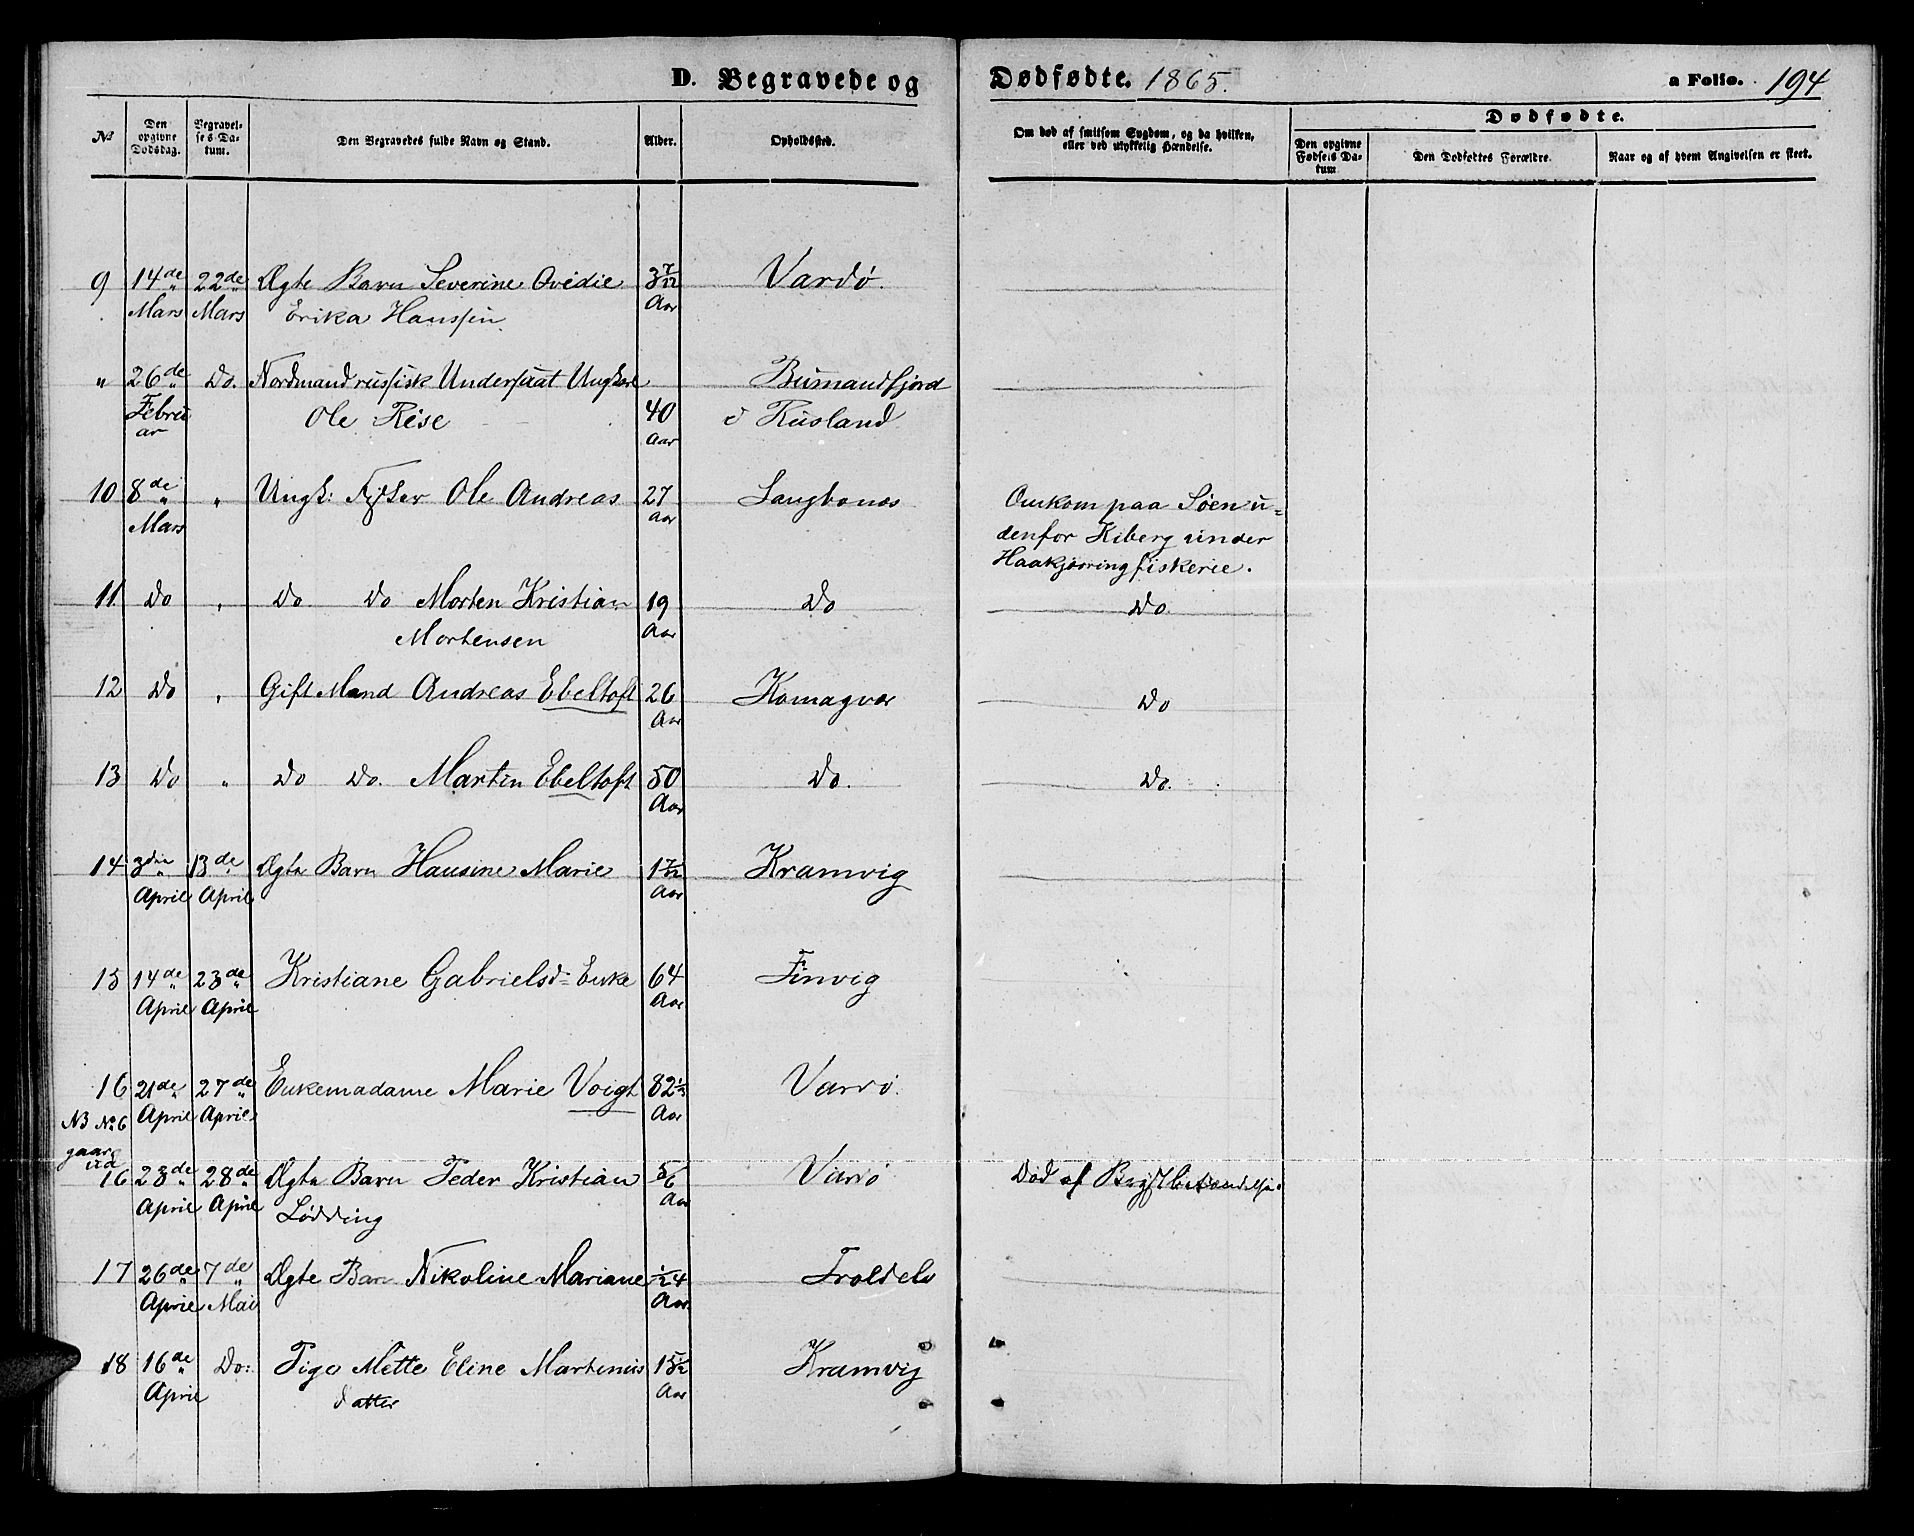 D. Begravede og Dødfødte. 1865. a Folio. 194
Dødfødte.
№ Den opgivne Dødsdag. Begravelses Datum. Den Begravedes fulde Navn og Stand. Alder. Opholdssted. Om død af smitsom Sygdom, og da hvilken, eller ved ulykkelig Hændelse. Den opgivne Fødsels Datum Den Dødfødtes Forældre. Naar og af hvem Angivelsen er skeet.
9 14de 22de Ægte Barn Severine Ovedie 3 7/12 Vardø.
Mars Mars Erika Hanssen Aar
" 26de Do. Nordmand russisk Undersaat Ungkarl Bumandfjord
Februar Ole Rise 40 i Rusland
Aar
10 8de " Ungk: Fisker Ole Andreas 27 Langbunes Omkom paa Søen u-
Mars Aar denfor Kiberg under
Haakjærringfiskerie.
11. Do " Do Do Morten Kristian 19 Do Do.
Mortensen Aar
12 Do " Gift Mand Andreas Ebeltoft 26 Komagvær Do
Aar
13 Do " Do Do. Martin Ebeltoft 50 Do. Do.
Aar
14 3die 13de Ægte Barn Hansine Marie 1 7/12 Kramvig
April April Aar
15 14de 23de Kristiane Gabrielsd= Enke 64 Finvig
April April Aar
16 21de 27de Enkemadame Marie Voigt 82 1/2 Vardø.
NB No 6 April April Aar
gaar ud
16 23de 28de Ægte Barn Peder Kristian 5/6 Vardø Død af Brystbetændelse.
April April Lødding Aar
17 26de 7de Ægte Barn Nikoline Mariane 1/24 Troldelv
April Mai Aar
18 16de Do: Pige Mette Eline Martinus 15 1/2 Kramvig
April datter Aar